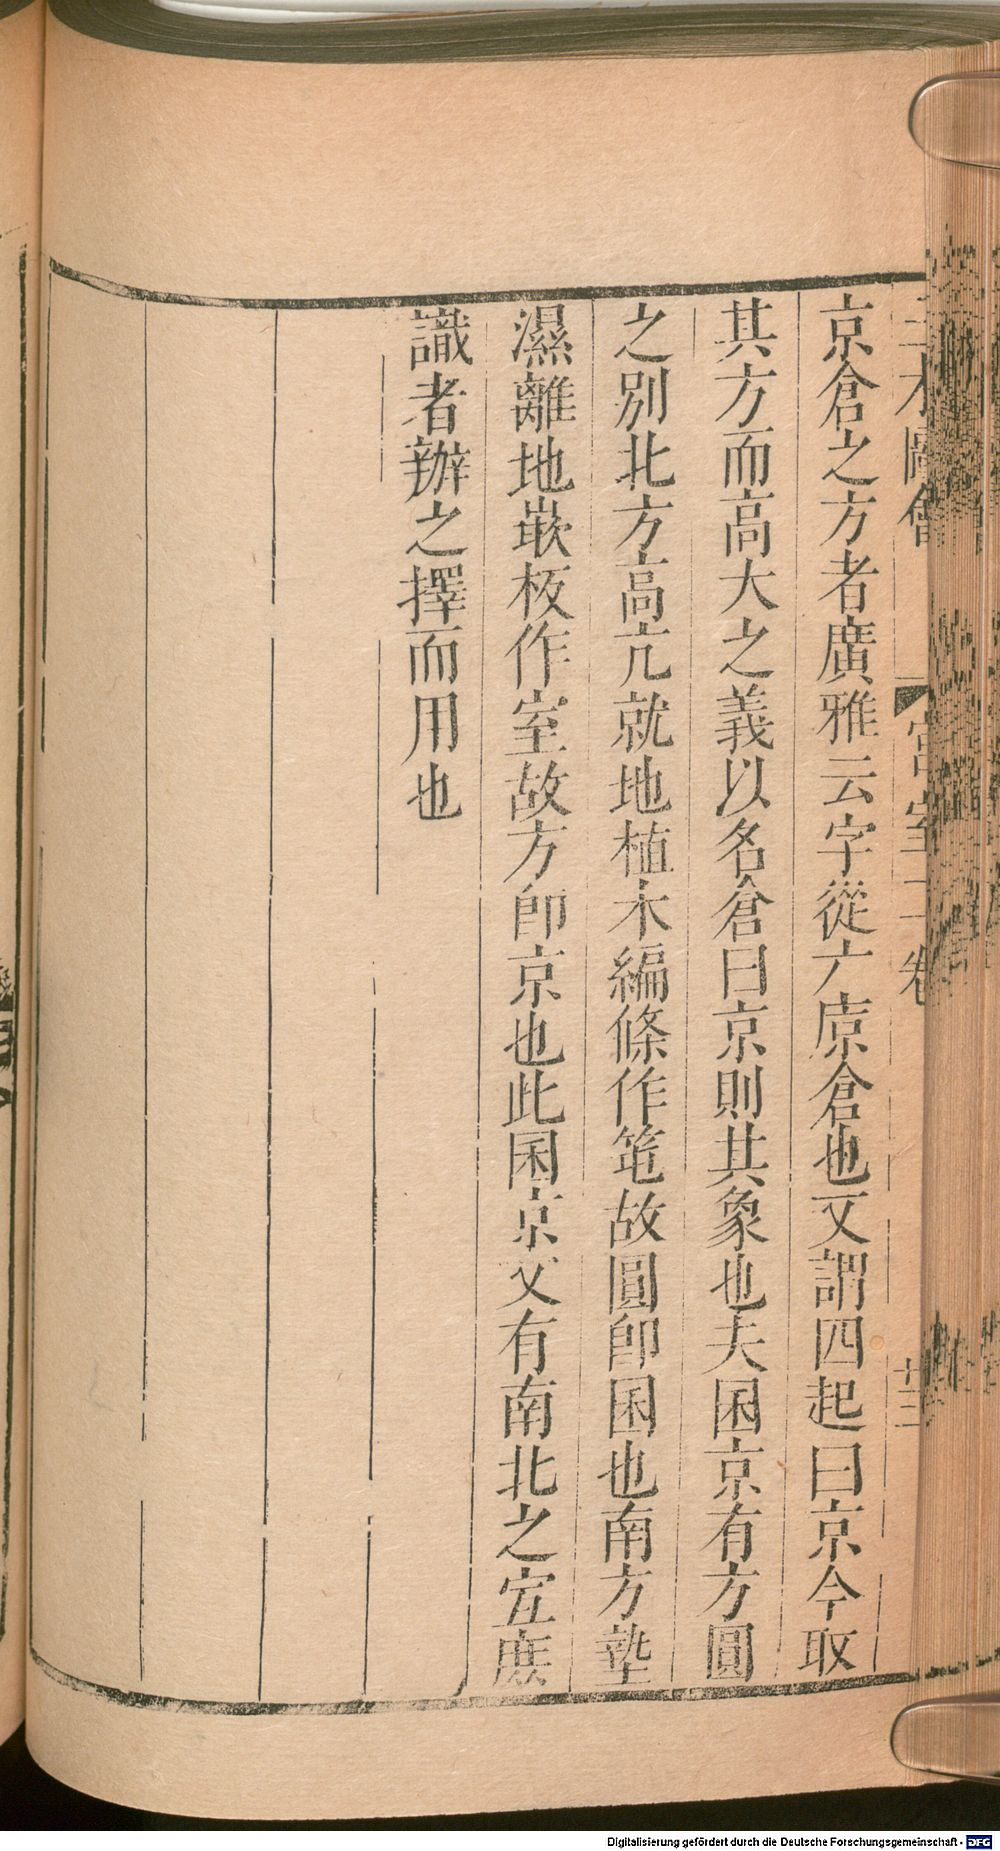 三才圖會
宮室二卷
十三
京倉之方者廣雅云字從广㢓倉也又謂四起曰京今取
其方而高大之義以名倉曰京則其象也夫囷京有方圓
之別北方高亢就地植木編條作𥫱故圓即囷也南方墊
濕離地嵌板作室故方即京也此囷京又有南北之宜庶
識者辦之擇而用也
Digitalisierung gefördert durch die Deutsche Forschungsgemeinschaft - DFG